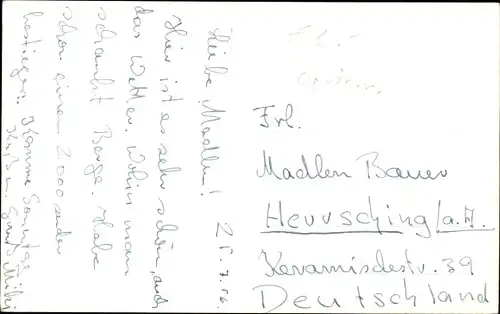 Liebe Madlen! 25.7.56.
Hier ist es sehr schön, auch
das Wetter. Wohin man
schaut Berge. Habe
schon einen 2000ender
bestiegen. Komme Sonntag
Gruß Miki
Frl.
Madlen Bauer
Herrsching/a.A.
Keramisdestr. 39
Deutschland